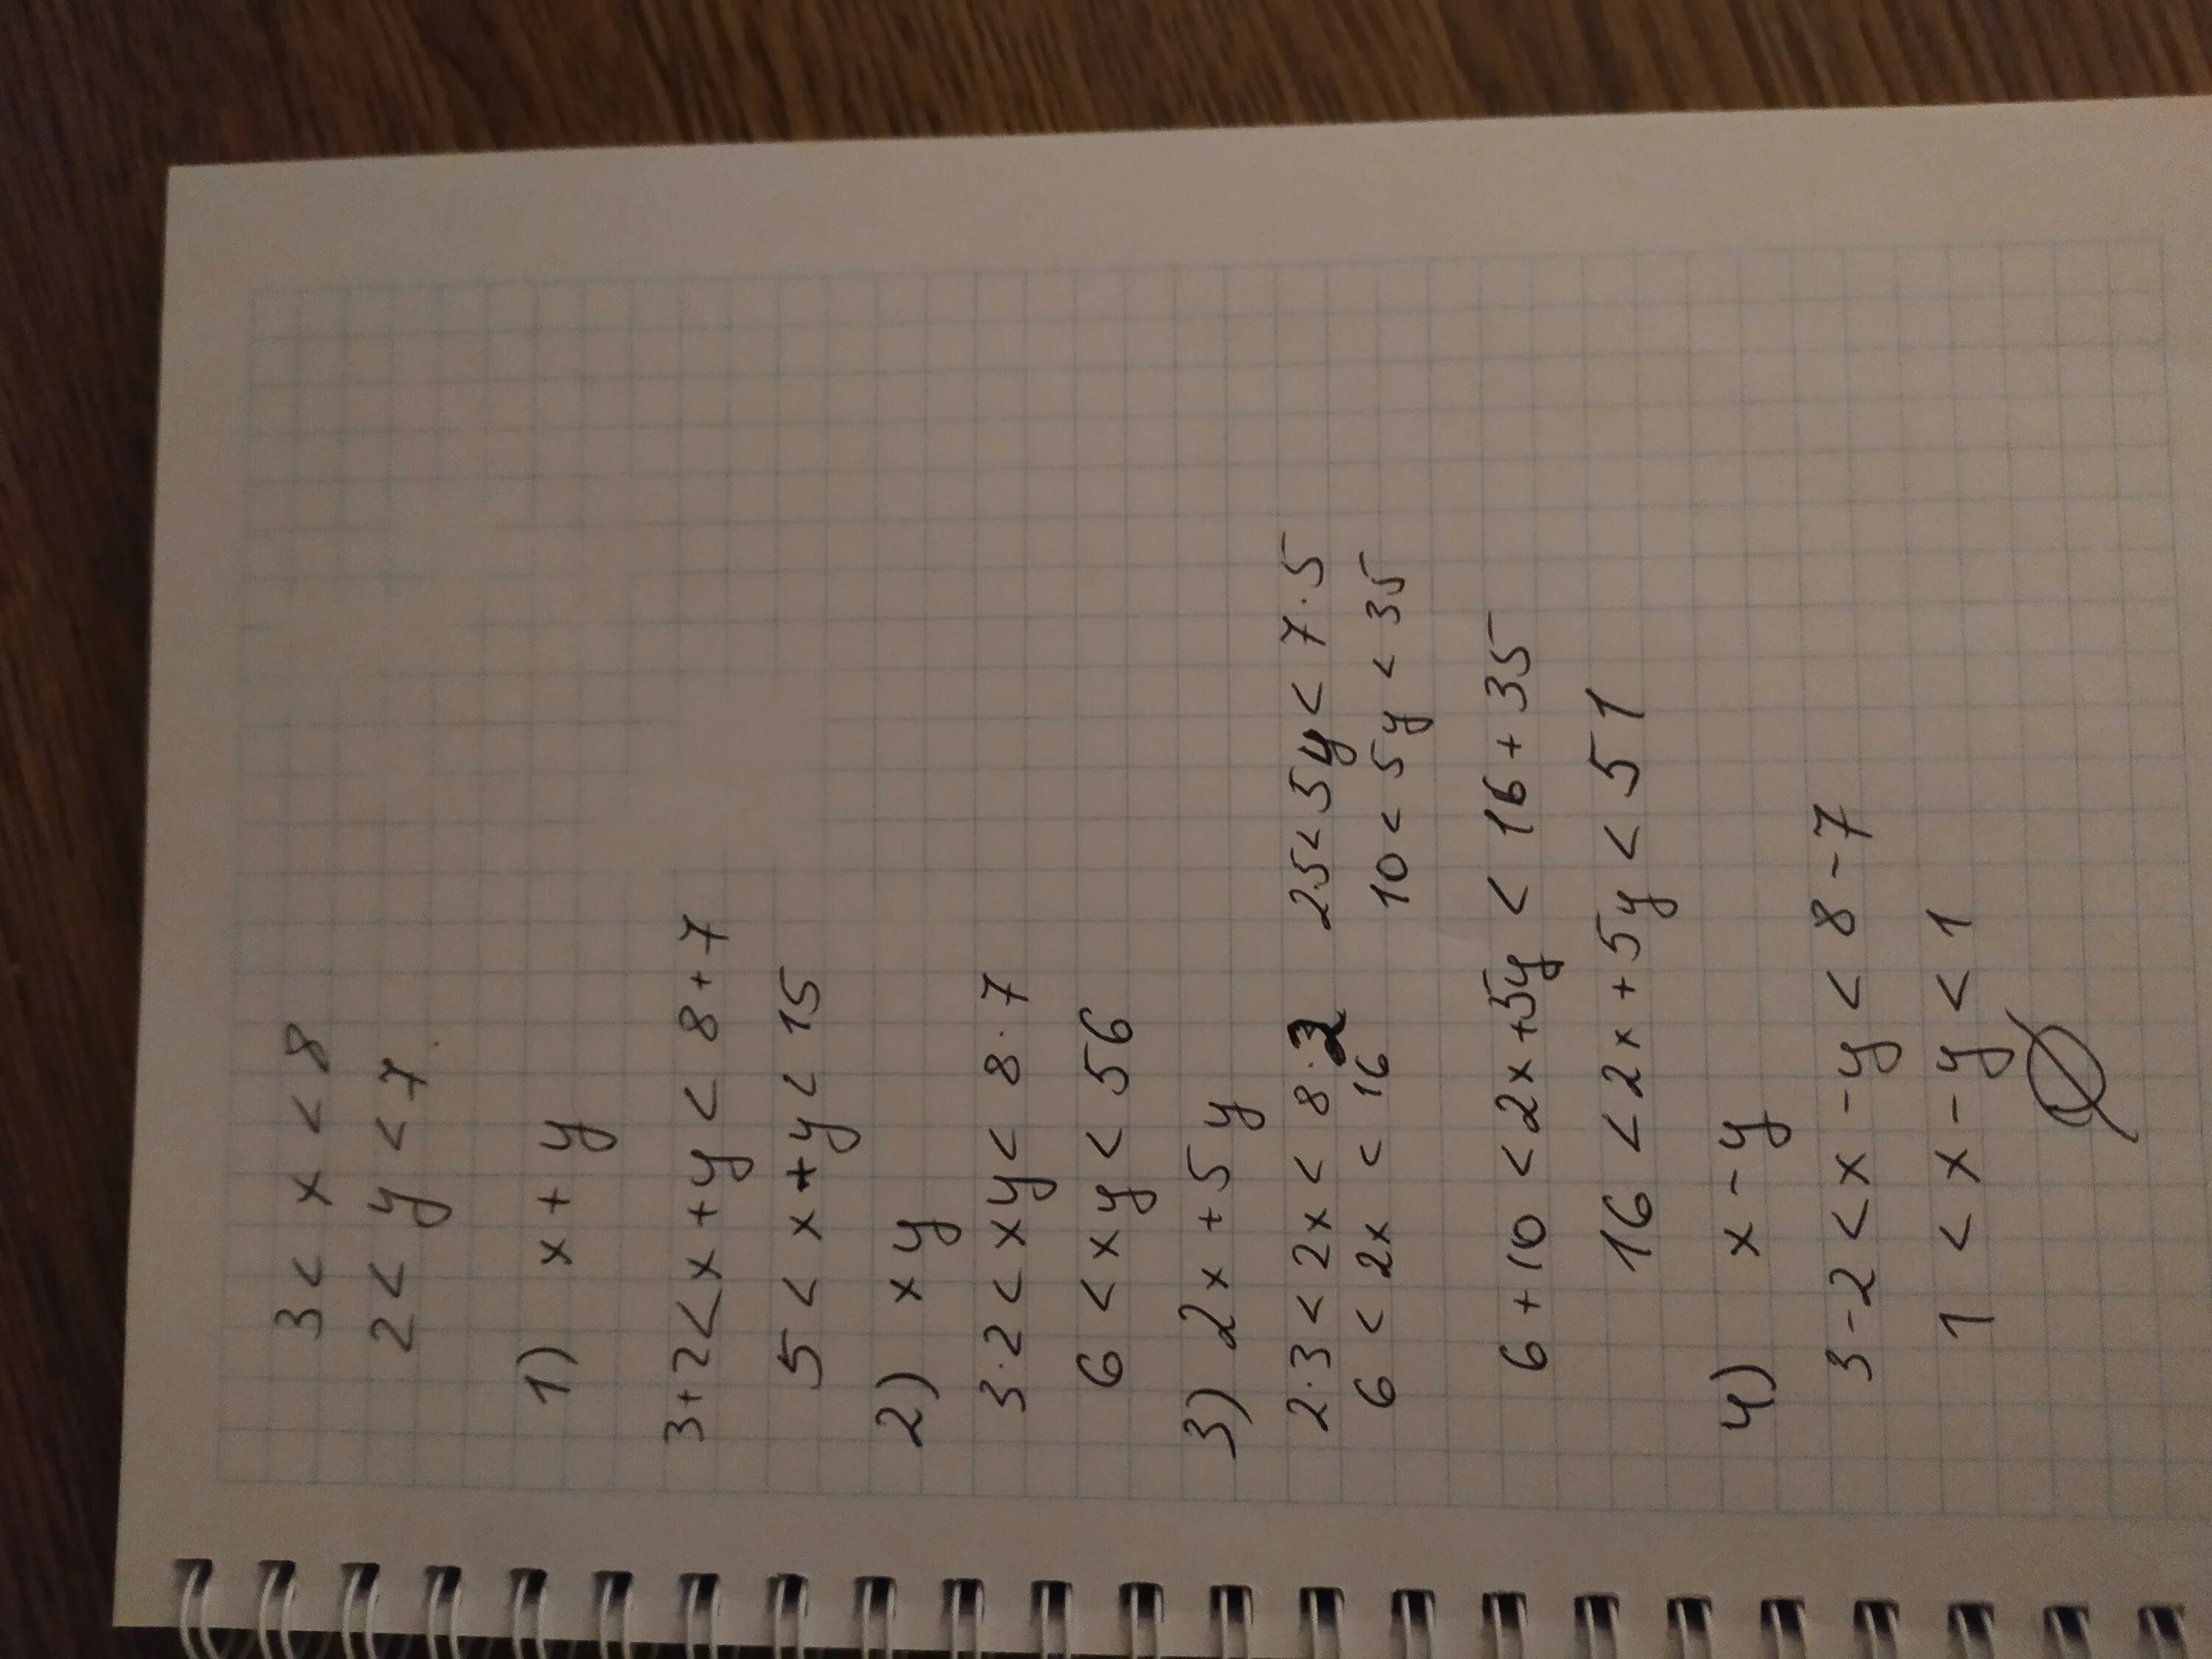 3 < x < 8
2 < y < 7
1) x + y
3+2 < x + y < 8+7
5 < x + y < 15
2) x y
3·2 < x y < 8·7
6 < x y < 56
3) 2x + 5y
2·3 < 2x < 8·2 2·5 < 5y < 7·5
6 < 2x < 16 10 < 5y < 35
6 + 10 < 2x + 5y < 16 + 35
16 < 2x + 5y < 51
4) x - y
3 - 2 < x - y < 8 - 7
1 < x - y < 1
∅